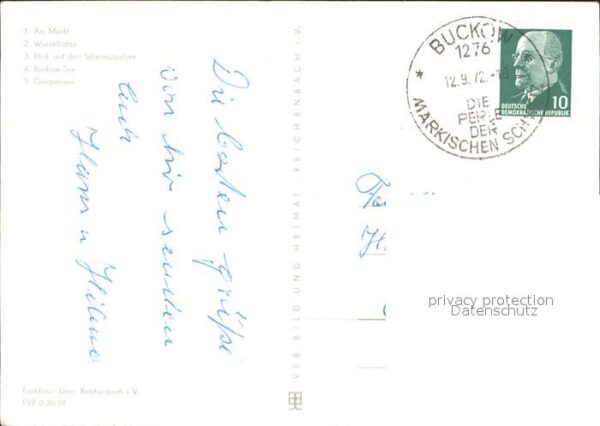 1. Am Markt
2. Wurzelfichte
3. Blick auf den Schermützelsee
4. Buckow See
5. Griepensee
Die besten Grüße
von hir senden
Euch
Hans u Hilma
Farbfoto - Dam. Reichenbach i. V.
VEB BILD UND HEIMAT REICHENBACH I. V.
BUCKOW
1276
12.9.72.-10
DIE
PERLE
DER
MÄRKISCHEN SCH
DEUTSCHE
DEMOKRATISCHE REPUBLIK
10
privacy protection
Datenschutz